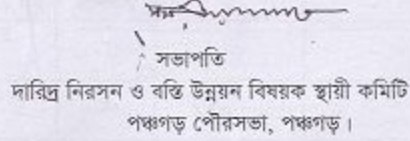 সভাপতি
দারিদ্র নিরসন ও বস্তি উন্নয়ন বিষয়ক স্থায়ী কমিটি
পঞ্চগড় পৌরসভা, পঞ্চগড়।